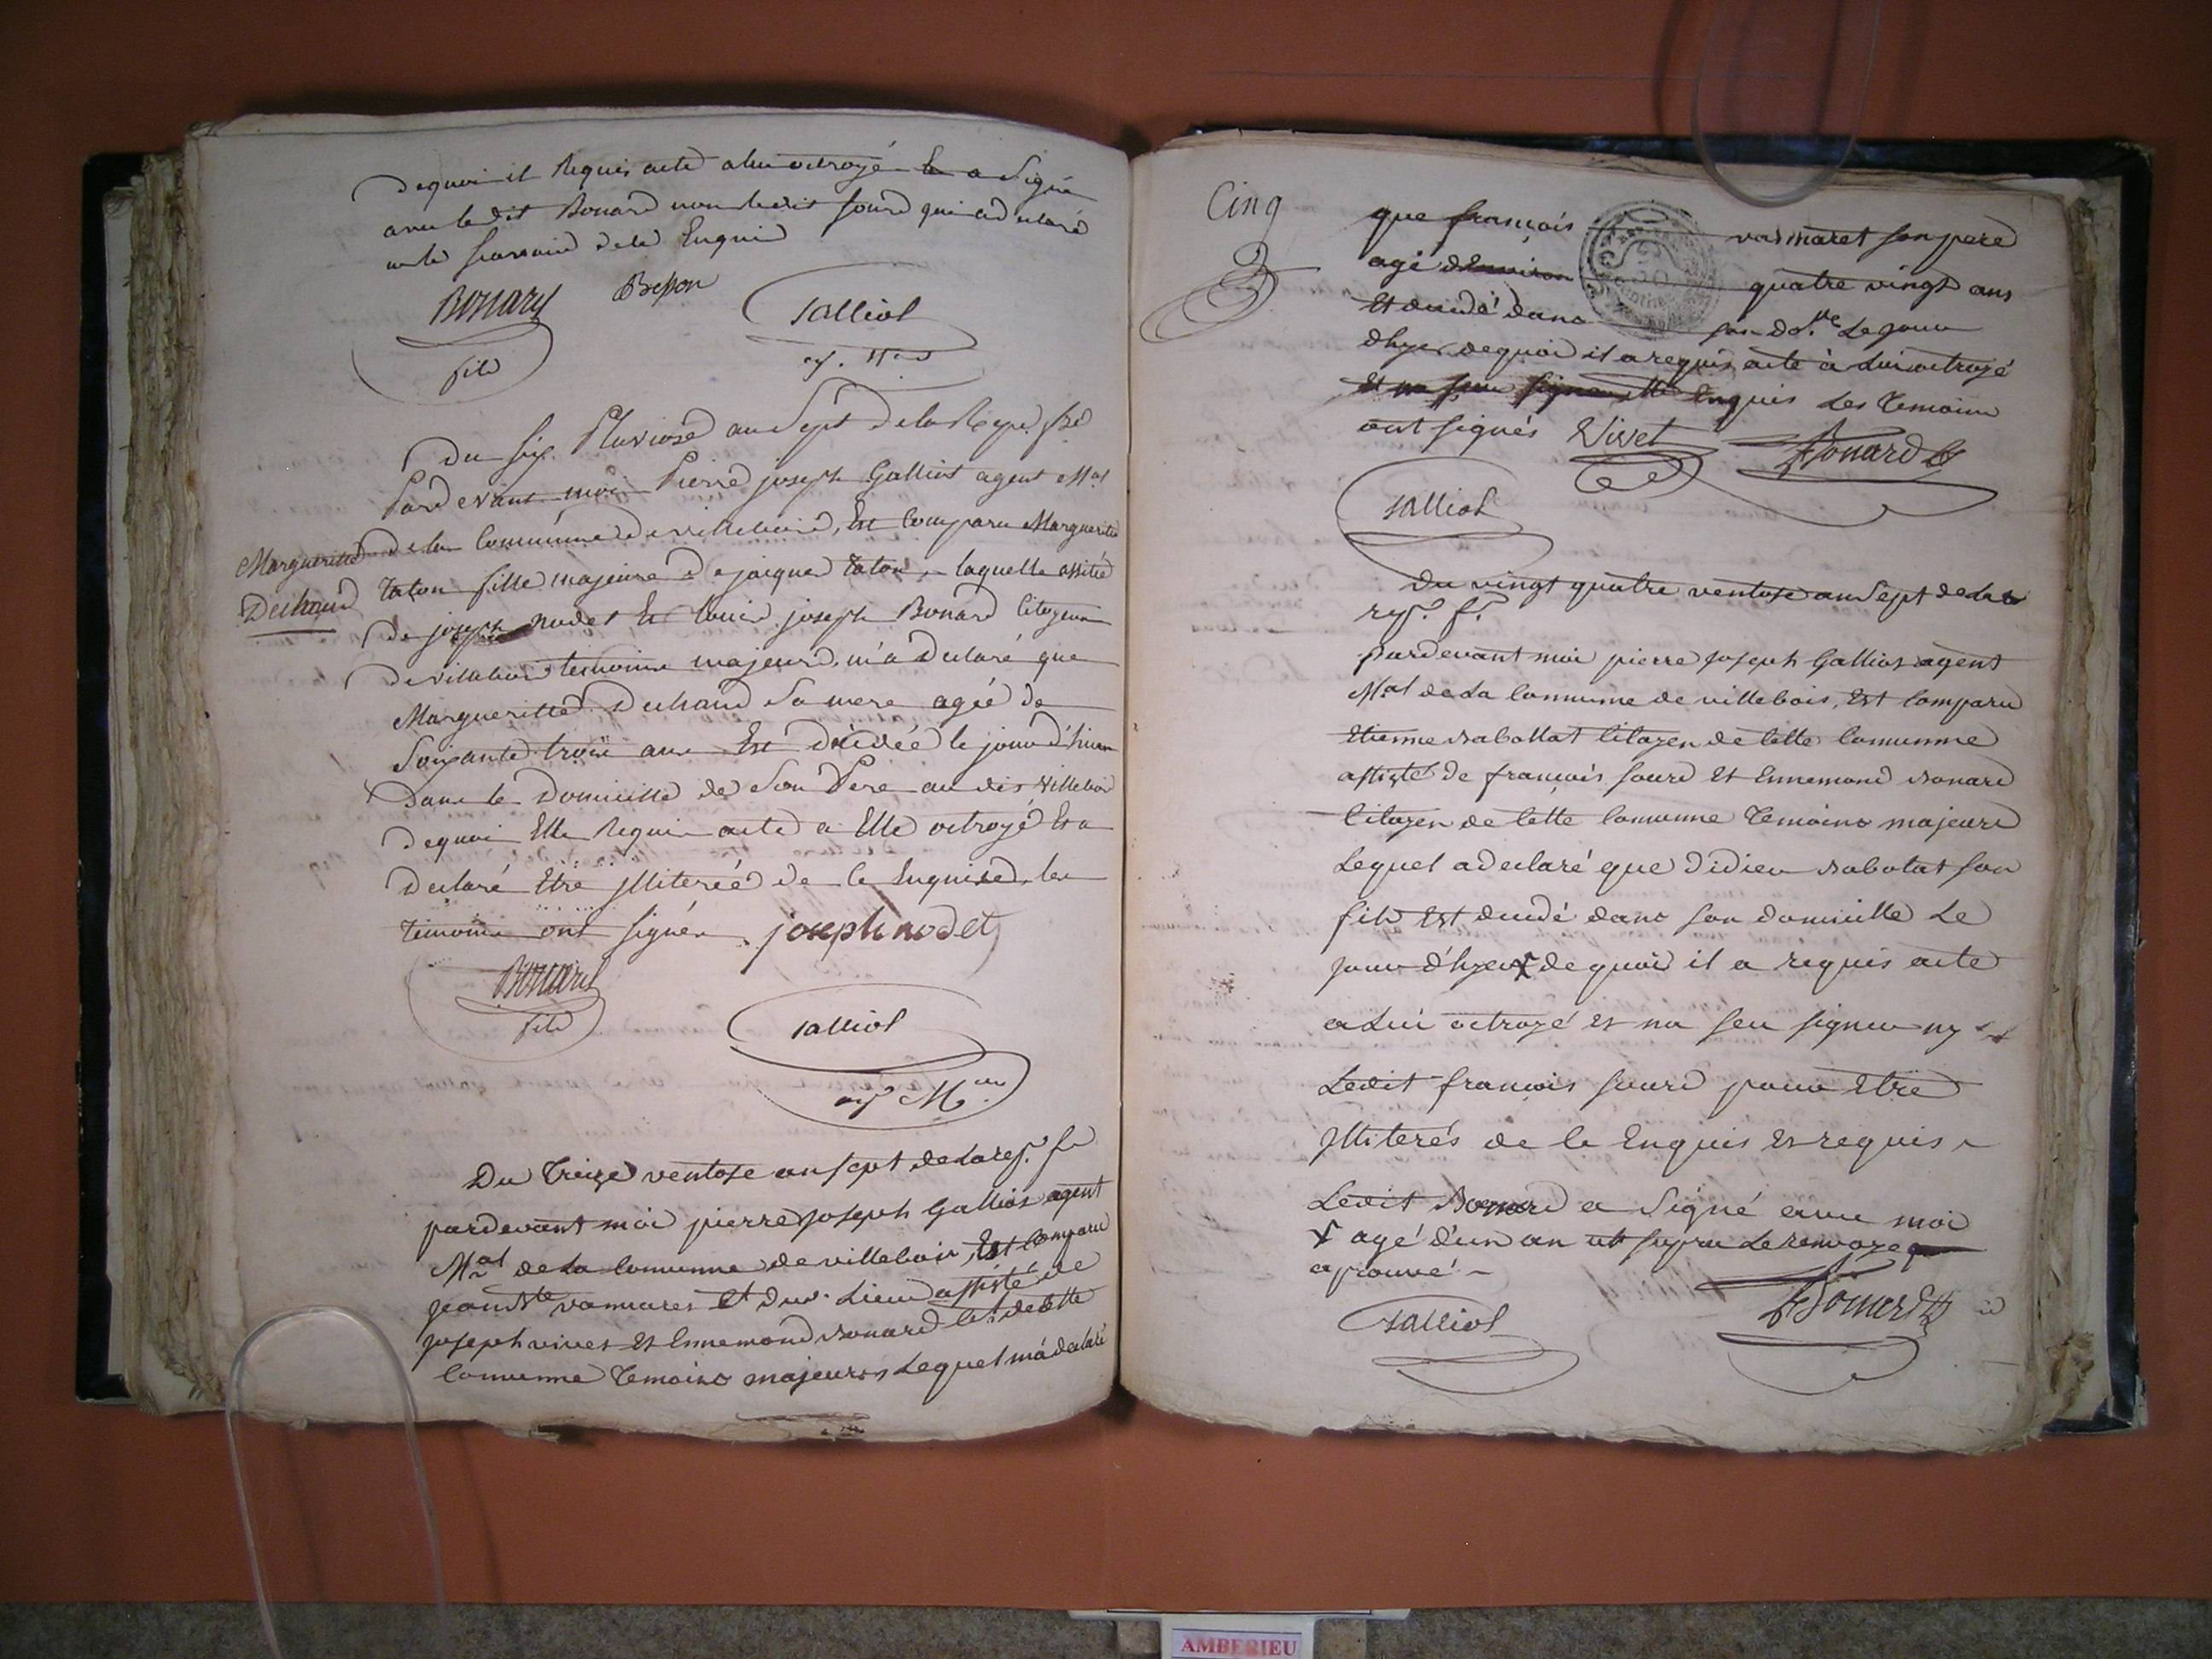 Dequoi il Requis acte a lui octroyé Et a Signé
avec le dit Bonard non le dit sourd qui a déclaré
ne le scavoir de ce Enquis
Bonard Besson Galliot
fils ag. Mal
Du six Pluviose an Sept de la Rep. fse
Pardevant moi Pierre joseph Galliot agent Mal
de la Commune de villebois, Est Comparu Marguerite
Margueritte
Duchaud
Taton fille majeure de jacques taton, laquelle assitée
De joseph nodet Et Louis joseph Bonard Citoyens
De villebois temoins majeurs, m'a Declaré que
Margueritte Duchaud Sa mere agée de
Soixante trois ans Est décédée le jour d'hier
Dans le Domicille de Son Pere au dit villebois
Dequoi Elle Requis acte a Elle octroyé Et a
Declaré Etre jlliterée de Ce Enquise, les
temoins ont signés joseph nodet
Bonard
fils
Galliot
ag Mal
Du Treize ventose an sept de La rep. fr
pardevant moi pierre joseph Galliot agent
Mal de La Commune de villebois, Est Comparu
jean Bte vasmaret Et dud. Lieu assisté de
joseph vivet Et Ennemond Bonard Cit de Cette
Commune Temoins majeurs Lequel m'a declaré
Cinq
que françois vasmaret son pere
agé d'Environ quatre vingt ans
Et decedé dans son do.lle Le jour
d'hyer dequoi il a requis acte à Lui octroyé
Et na seu signer de Enquis Les Temoins
ont signés Vivet Bonard
Galliot
Du vingt quatre ventose an Sept de La
rep. f.
pardevant moi pierre joseph Galliot agent
Mal de La Commune de villebois, Est Comparu
Etienne Rabollat Citoyen de Cette Commune
assisté de françois sourd Et Ennemond Bonard
Citoyen de Cette Commune Temoins majeurs
Lequel a declaré que Didier Rabolat son
fils Est decedé dans son domicille Le
jour d'hyer x de quoi il a requis acte
a Lui octroyé Et na seu signer ny
Ledit françois sourd pour Etre
jlliterés de Ce Enquis Et requis
Ledit Bonard a Signé avec moi
x agé d'un an ut supra Le renvoye
aprouvé
Galliot Bonard
AMBERIEU